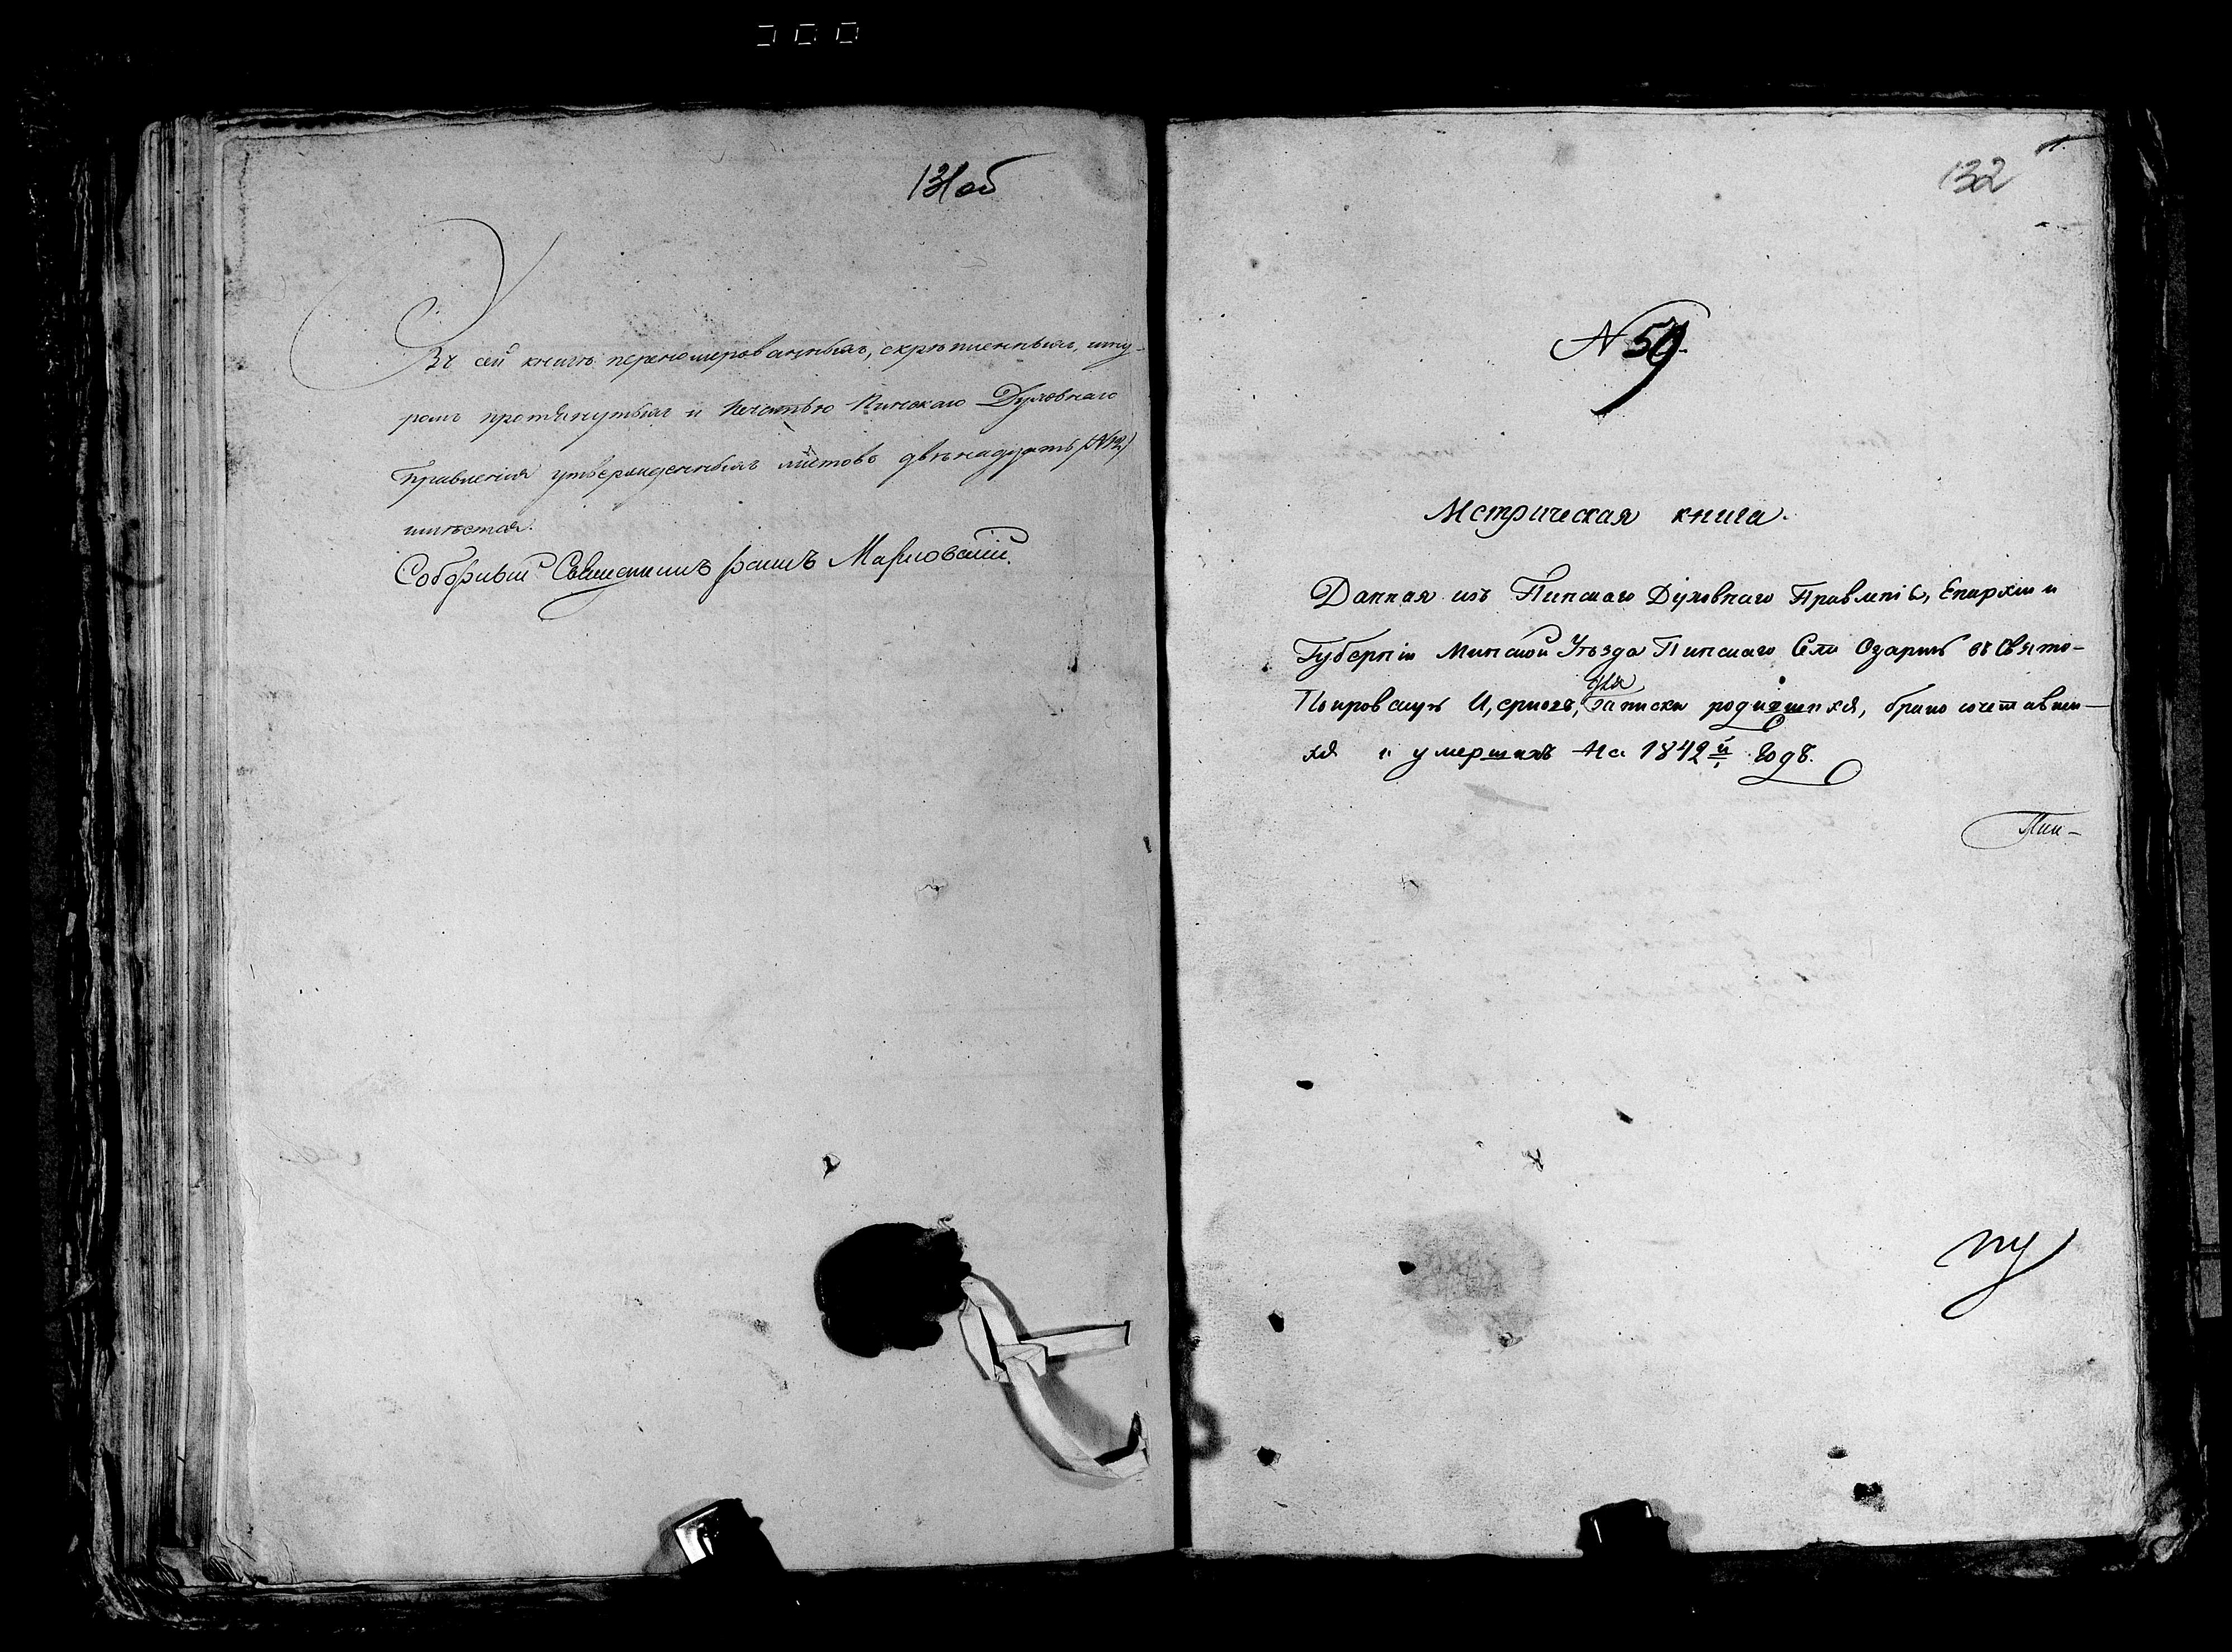 131об
Въ сей книгѣ перенумерованныхъ, скрѣпленныхъ, шну-
ромъ протянутыхъ и печатью Пинскаго Духовнаго
Правленія утвержденныхъ листовъ двѣнадцать (№12)
Соборный Священникъ
132
N 59.
Метрическая книга.
Данная изъ Пинскаго Духовнаго Правленія, Епархіи и
Губерніи Минской Уѣзда Пинскаго Села Озаричъ въ Свято-
Покровскую Церковь, для записки родившихся, бракосочетавши-
хся и умершихъ на 1842й годъ.
Пин-